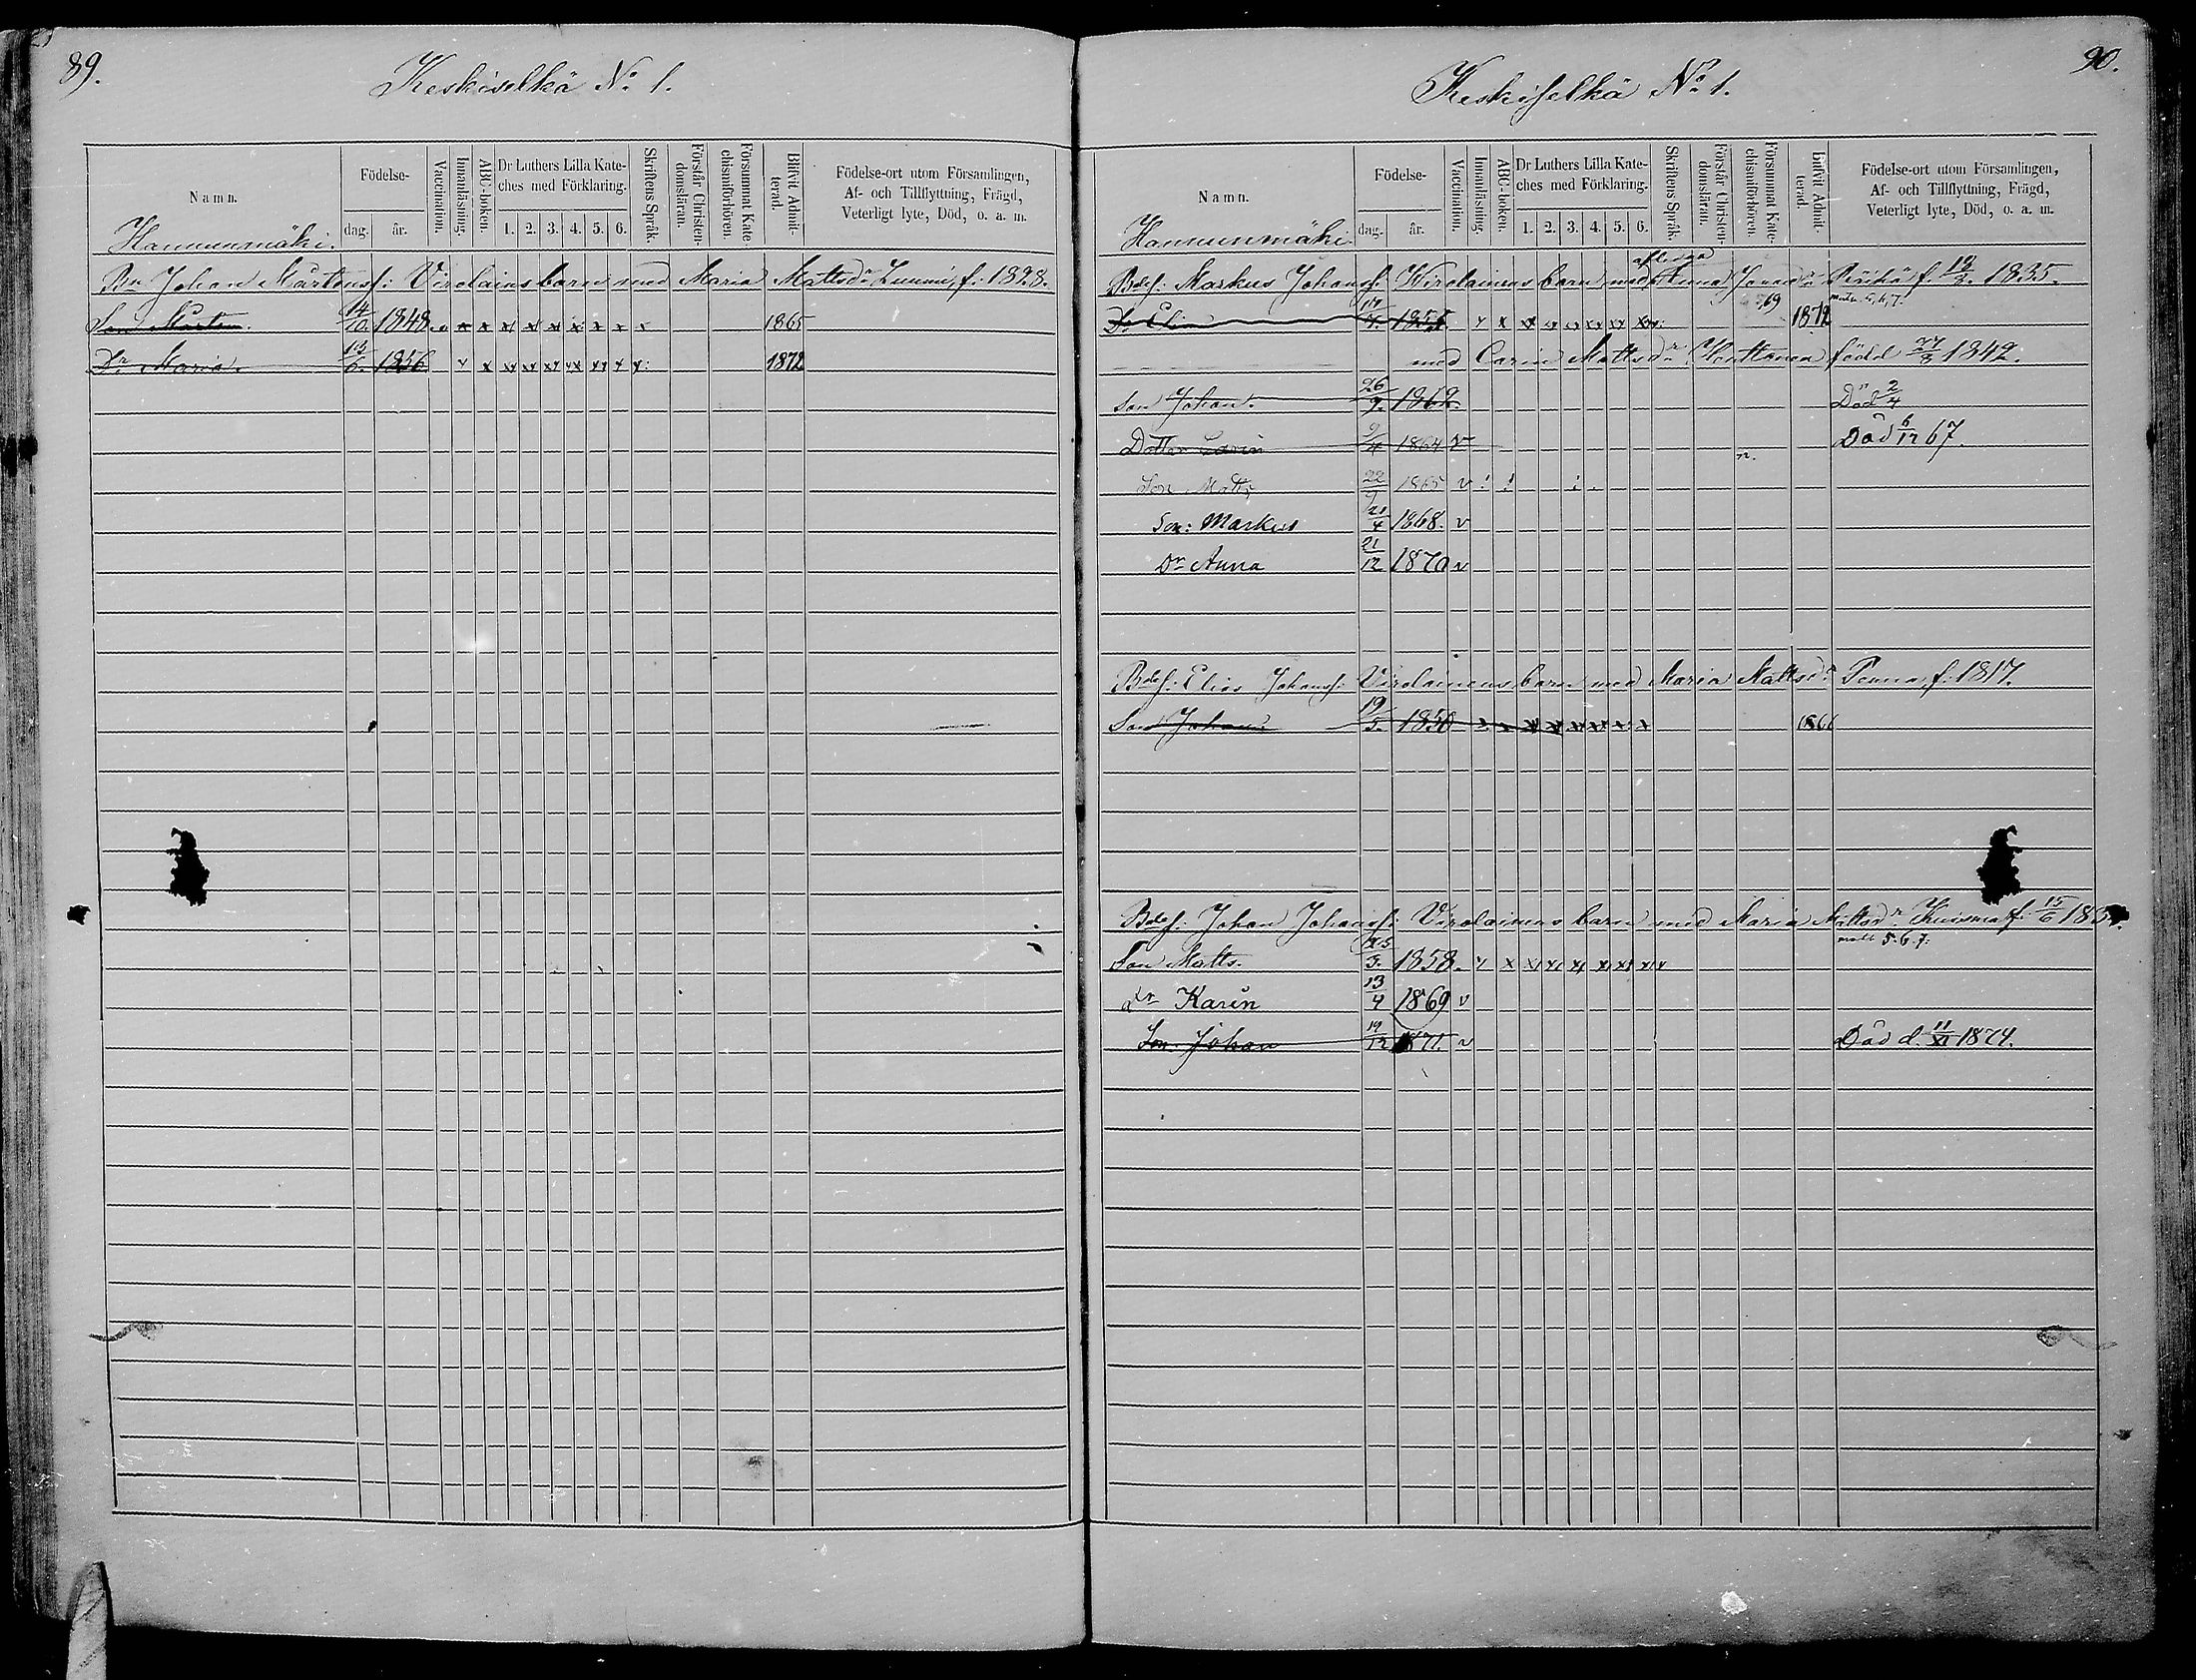 89.
Keskiselkä No. 1.
Namn.
Födelse-
dag. år.
Vaccination.
Innanläsning.
ABC-boken.
Dr Luthers Lilla Kate-
ches med Förklaring.
1. 2. 3. 4. 5. 6.
Skriftens Språk.
Förstår Christen-
domsläran.
Försummat Kate-
chismiförhören.
Blifvit Admit-
terad.
Födelse-ort utom Församlingen,
Af- och Tillflyttning, Frägd,
Veterligt lyte, Död, o. a. m.
Hannunmäki.
Bn Johan Mårtensf: Virolains barn med Maria Mattsdr f: 1828.
Son Mårten. 14/10. 1848. x x x x x x x x 1865
Dr Maria. 13/6. 1856 x x x x x x x x 1872
90.
Keskiselkä No. 1.
Namn.
Födelse-
dag. år.
Vaccination.
Innanläsning.
ABC-boken.
Dr Luthers Lilla Kate-
ches med Förklaring.
1. 2. 3. 4. 5. 6.
Skriftens Språk.
Förstår Christen-
domsläran.
Försummat Kate-
chismiförhören.
Blifvit Admit-
terad.
Födelse-ort utom Församlingen,
Af- och Tillflyttning, Frägd,
Veterligt lyte, Död, o. a. m.
Hannunmäki
Bdef: Markus Johansf: Wirolainens barn med aflidna Anna f. 1835.
Dr Elin 1872
med Carin Mattsdr född 1842.
Son Johan. 26/9. 1862. Död 2/4
Dotter Carin 9/4 1864 v Död 6/12 67.
Son Matts 22/9 1865 v
Son: Markus 21/4 1868. v
Dr Anna 21/12 1870 v
Bdef: Elias Johansf: Virolainens barn med Maria Mattsdr f: 1817.
Son Johan 19/5. 1850 x x x x x x x x 1866
Bdef: Johan Johansf: Virolainens barn med Maria Mattsdr f: 15/6
5. 6. 7.
Son Matts. 1858. x x x x x x x x
dr Karin 13/4 1869 v
Son Johan 19/12 1871. v Död d. 11/XI 1874.